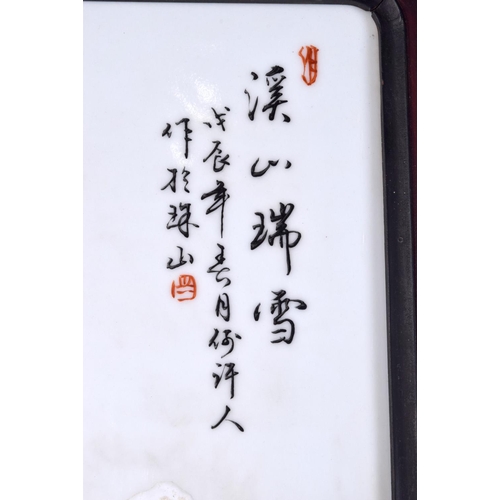 溪山瑞雪
戊辰年春月何許人
作於珠山